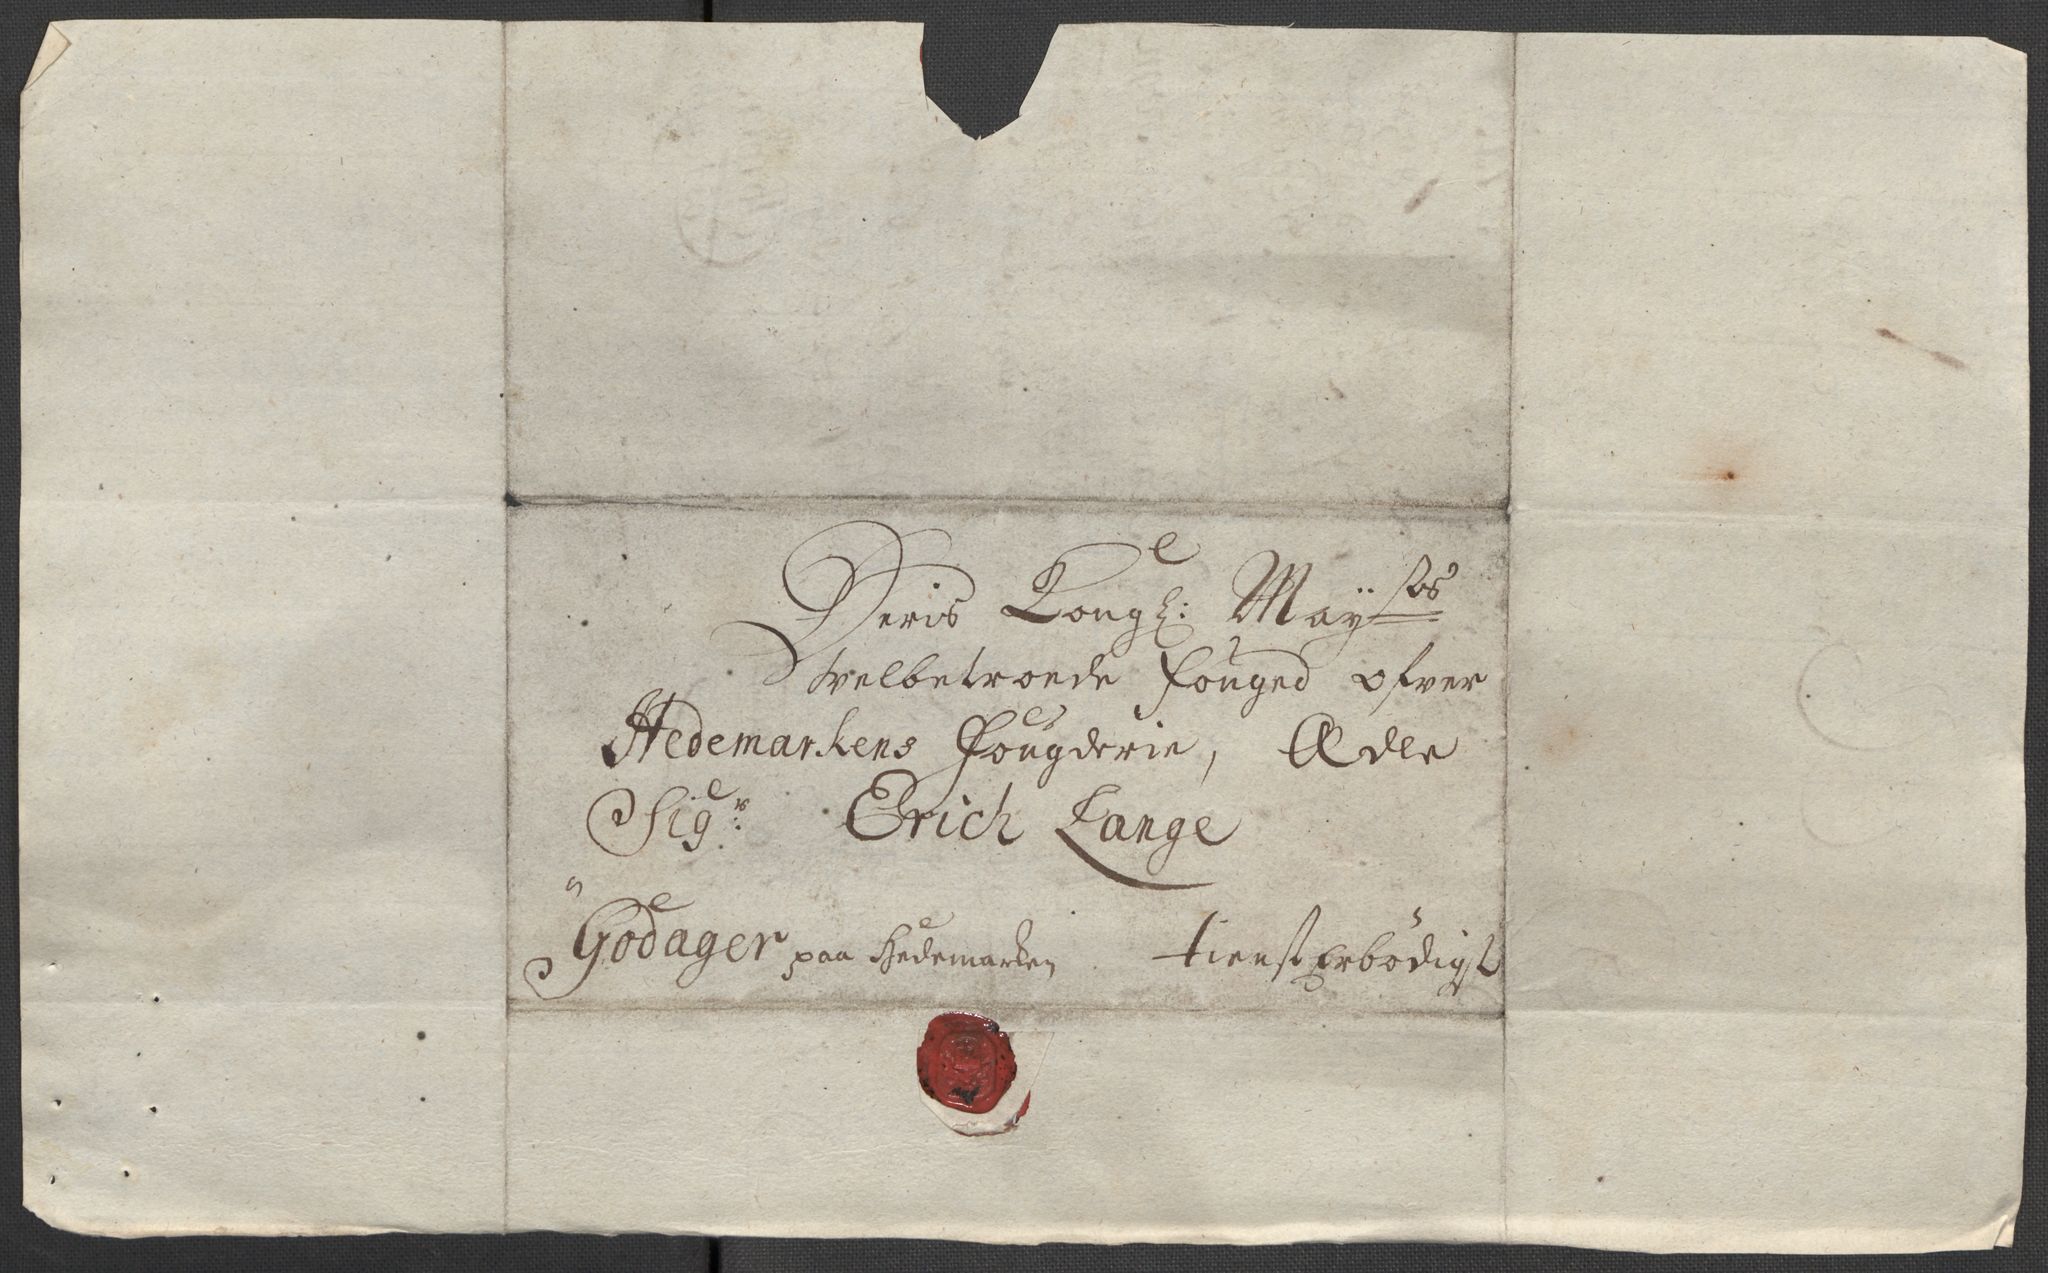 Deris Kongl: Mayſtͤs
velbetroede Fouged ofver
Hedemarkens Fougderie, Ædle
Sigr: Erich Lange
Godager paa Hedemarken tienst Erbödigst